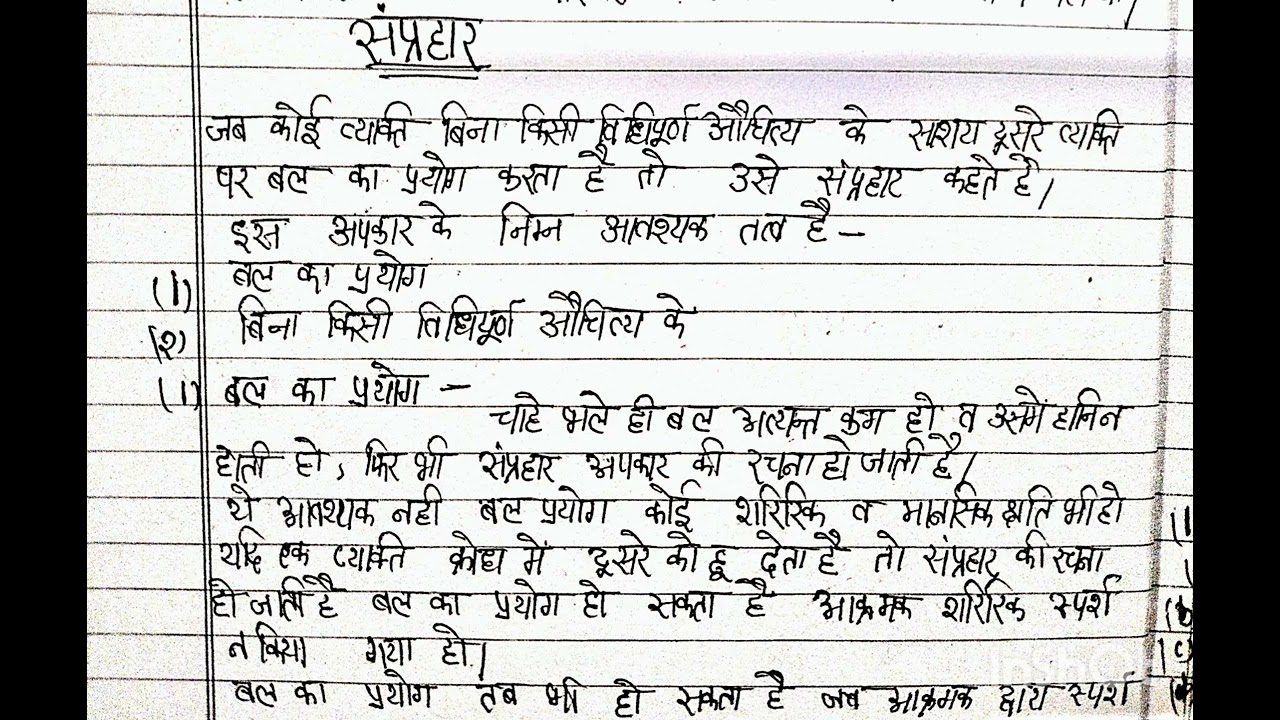 संप्रहार
जब कोई व्यक्ति बिना किसी विधिपूर्ण औचित्य के साशय दूसरे व्यक्ति
पर बल का प्रयोग करता है तो उसे संप्रहार कहते है।
इस अपकार के निम्न आवश्यक तत्व है –
(1) बल का प्रयोग
(2) बिना किसी विधिपूर्ण औचित्य के
(1) बल का प्रयोग –
चाहे भले ही बल अत्यन्त कम हो व उसमें हानि न
होती हो, फिर भी संप्रहार अपकार की रचना हो जाती है।
ये आवश्यक नही बल प्रयोग कोई शरिरिक व मानसिक क्षति भी हो
यदि एक व्यक्ति क्रोध में दूसरे को छू देता है तो संप्रहार की रचना
हो जाती है बल का प्रयोग हो सकता है आक्रमक शरिरिक स्पर्श
न किया गया हो।
बल का प्रयोग तब भी हो सकता है जब आक्रमक द्वारा स्पर्श